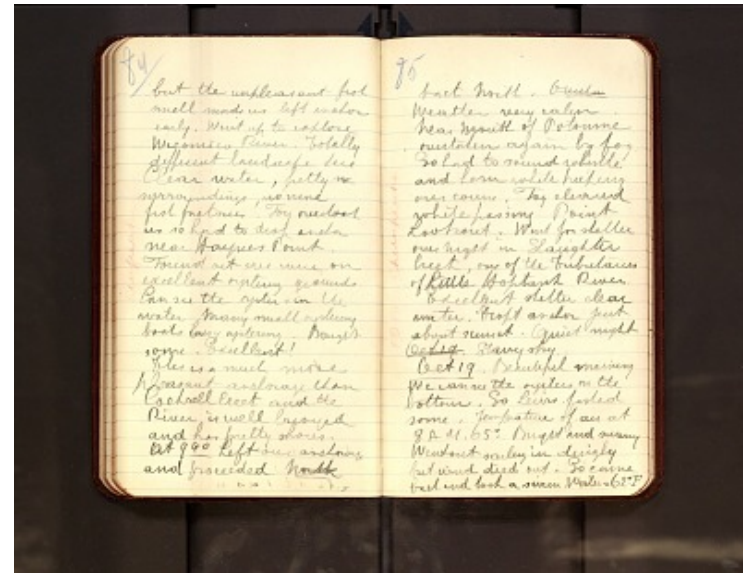 84/
but the unpleasant fish
smell made us left anchor
early. Went up to explore
Wicomico River. Totally
different landscape
Clear water, pretty
surroundings,
fish factories. Fog overtook
us so had to drop anchor
near Haynes Point.
Found out we were on
excellent oystering grounds
Can see the oysters in the
water. Many small oystering
boats busy oystering. Bought
some. Excellent!
This is a much more
pleasant anchorage than
Cockrell Creek and the
River is well buoyed
and has pretty shores.
At 9 00 left our anchorage
and proceeded North
85
back North.
Weather very calm.
Near Mouth of Potomac
overtaken again by fog
So had to sound whistle
and horn while keeping
our course. Fog cleared
while passing Point
Lookout. Went for shelter
over night in Slaughter
Creek, one of the tributaries
of Little Hopkank River.
Excellent shelter clear
water. Dropt anchor just
about sunset. Quiet night
Oct 19. Starry sky
Oct 19. Beautiful morning
We can see the oysters on the
bottom. So Lewis fished
some. Temperature of air at
8 A.M. 65°. Bright and sunny
Went out sailing in dinghy
but wind died out. So came
back and took a swim Water 62°F